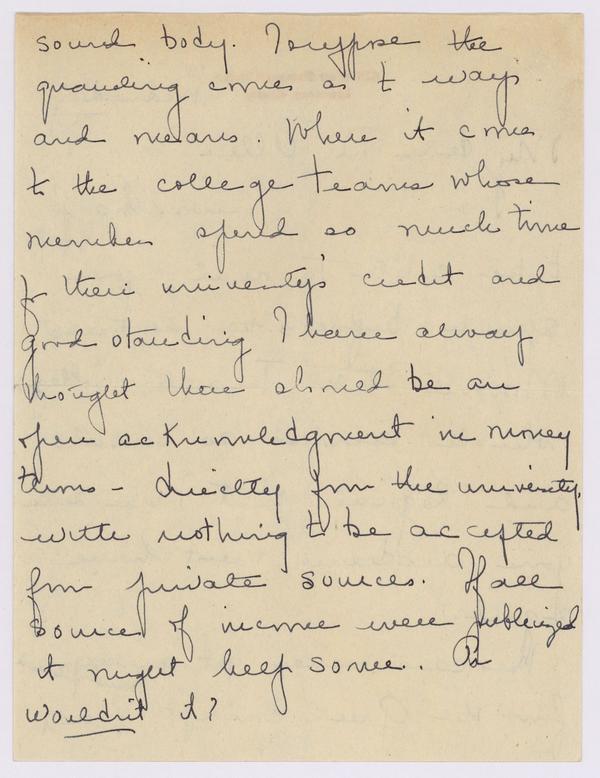 sound body. I suppose the
quanding comes as to ways
and means. Where it comes
to the college teams whose
members spend so much time
for their university's credit and
good standing I have always
thought there should be an
open acknowledgment in money
terms - directly from the university,
with nothing to be accepted
from private sources. If all
source of income were publicized
it might help some. Or
wouldn't it?